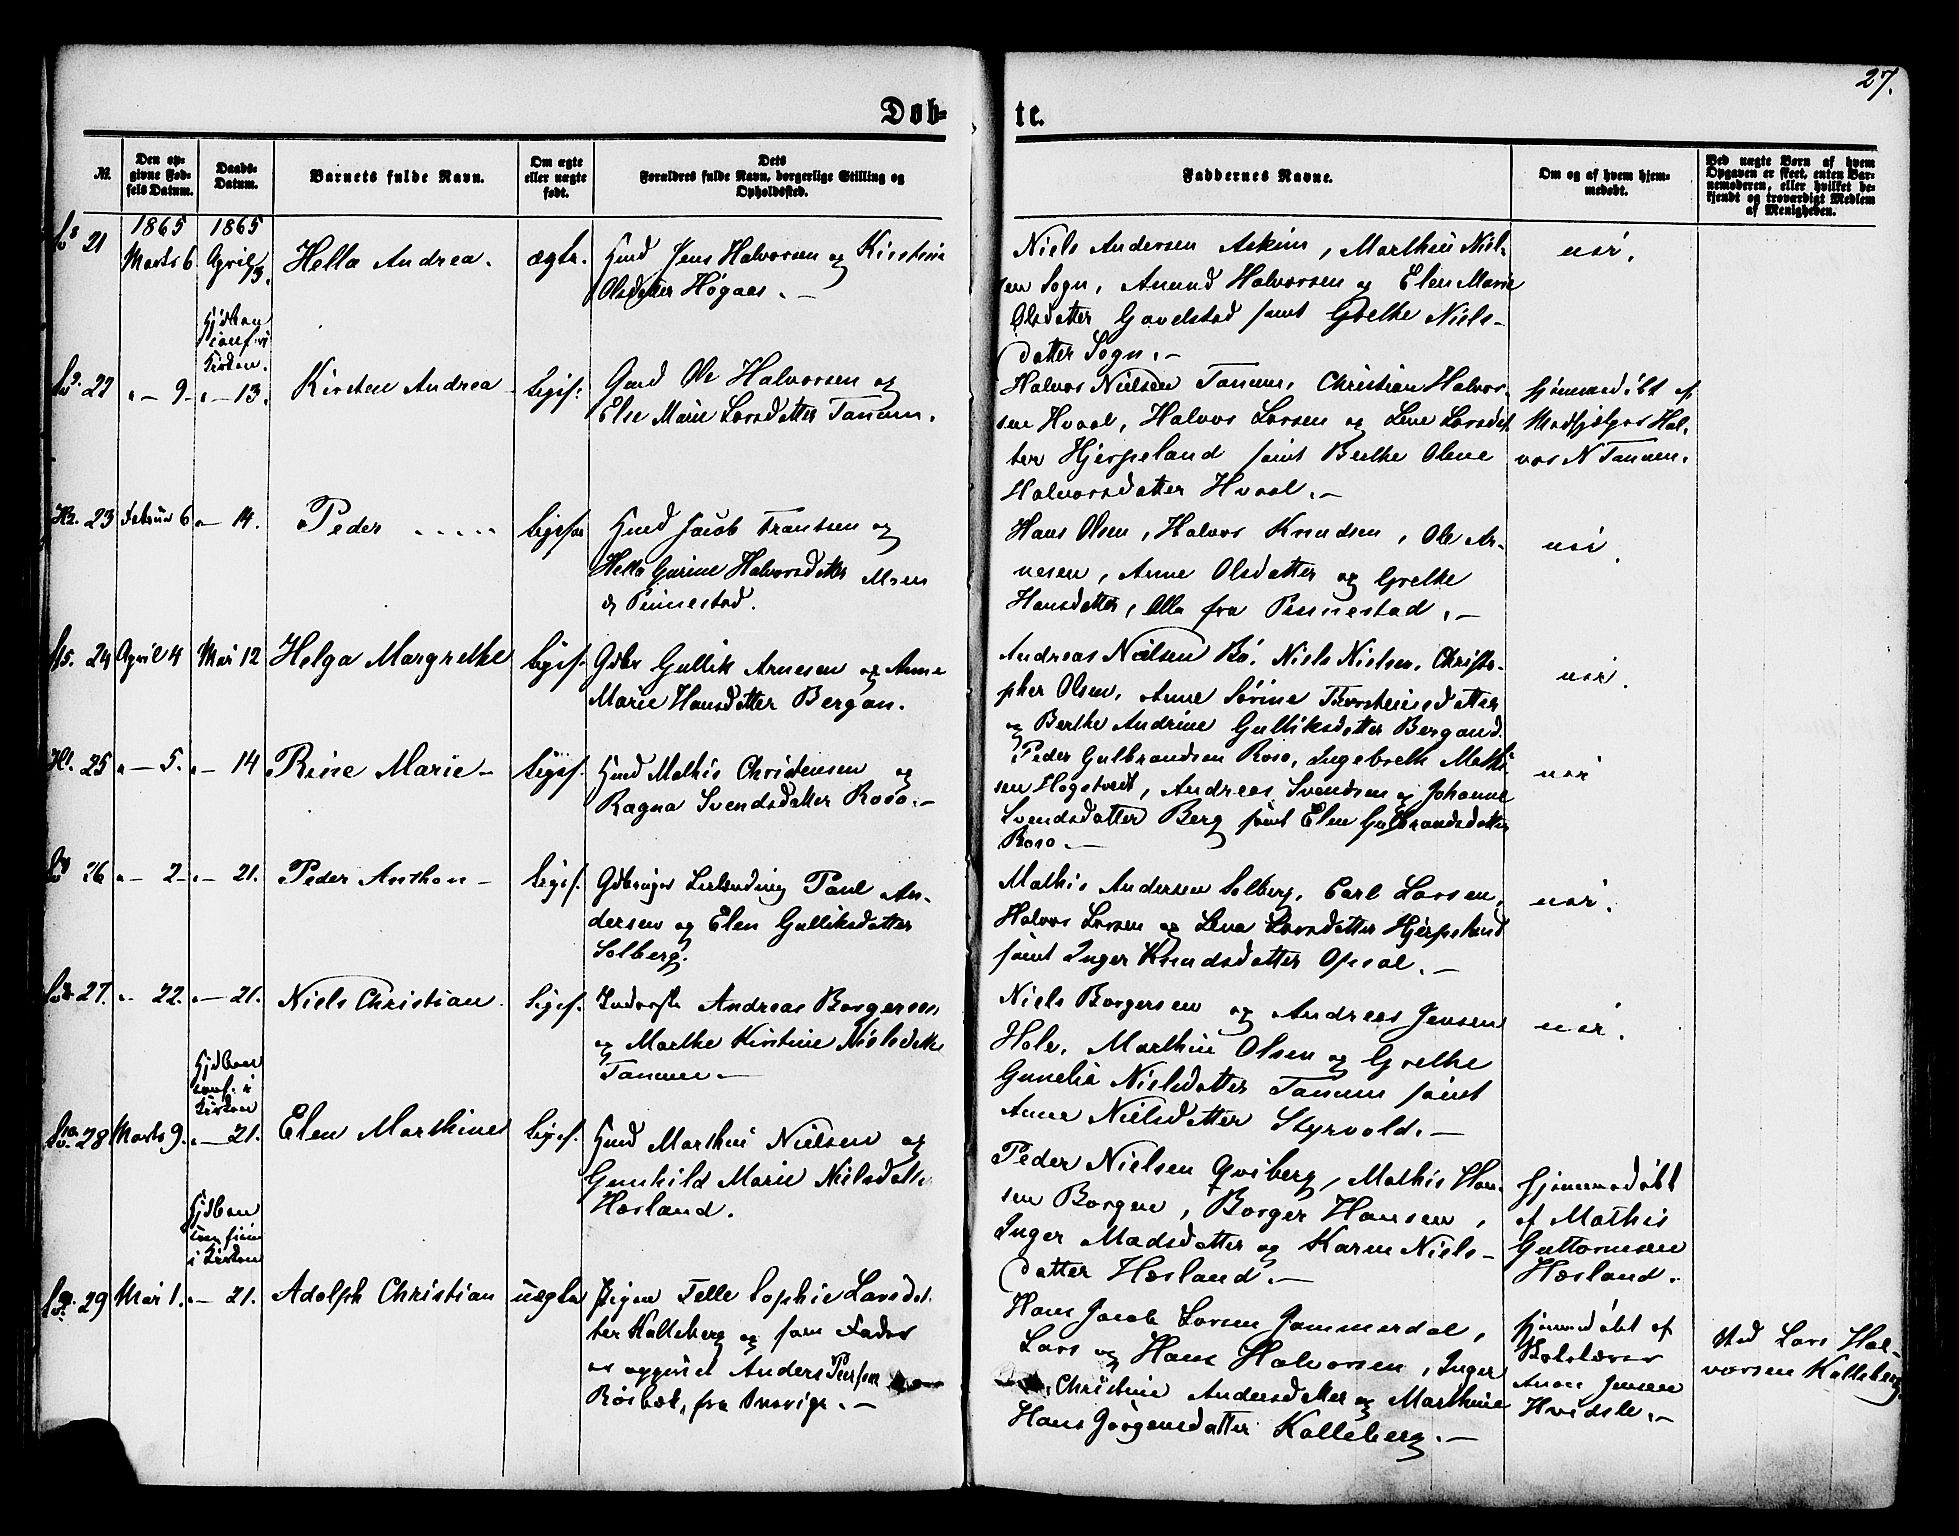 27.
Døb-
te.
№.
Den op-
givne Fød-
sels Datum.
Daabs-
Datum.
Barnets fulde Navn.
Om ægte
eller uægte
født.
Dets
Forældres fulde Navn, borgerlige Stilling og
Opholdssted.
Faddernes Navne.
Om og af hvem hjem-
medøbt.
Ved uægte Børn af hvem
Opgaven er skeet, enten Bar-
nemoderen, eller hvilket be-
kjendt og troværdigt Medlem
af Menigheden.
1865
1865
21
Marts 6
April
13.
Hella Andrea.
ægte.
Hmd Jens Halvorsen og Kirstine
Olsdatter Høgaas. —
Niels Andersen Askim, Marthin Niel-
sen Sogn, Amund Halvorsen og Elen Marie
Olsdatter Gavelstad samt Grethe Niels-
datter Sogn. —
nei.
Hjdben
conf. i
Kirken.
22
" — 9 -
" — 13.
Kirsten Andrea -
Ligef:
Gmd Ole Halvorsen og
Else Marie Larsdatter Tanum.
Halvor Nielsen Tanum, Christian Halvor-
sen Hvaal, Halvor Larsen og Lene Larsdat-
ter Hjerpeland samt Berthe Olene
Halvorsdatter Hvaal. —
Hjemmedøbt af
Medhjelper Hal-
vor N Tanum.
23
Februar 6
" — 14.
Peder . . . . .
Ligesaa
Hmd Jacob Frantsen og
Hella Gurine Halvorsdatter Moen
og Pinnestad.
Hans Olsen, Halvor Knudsen, Ole Ar-
nesen, Anne Olsdatter og Grethe
Hansdatter, Alle fra Pinnestad. —
nei.
24
April 4
Mai 12
Helga Margrethe
Ligef.
Gdbr Gullik Arnesen og Anne
Marie Hansdatter Bergan.
Andreas Nielsen Bø, Niels Nielsen, Christo-
pher Olsen, Anne Sørine Thorsteinsdatter
og Berthe Andrine Gulliksdatter Bergand.
nei.
25
" — 5.
" — 14
Rine Marie -
Ligef.
Hmd Mathis Christensen og
Ragna Svendsdatter Roso. —
Peder Gulbrandsen Roso, Ingebreth Mathi-
sen Høgstvedt, Andreas Svendsen og Johanne
Svendsdatter Berg samt Elen Gulbrandsdatter
Roso —
nei
26
" — 2 -
" — 21.
Peder Anthon -
Ligef.
Gdbruger Leilænding Paul An-
dersen og Elen Gulliksdatter
Solberg.
Mathis Andersen Solberg, Carl Larsen,
Halvor Larsen og Lena Larsdatter Hjerpeland
samt Inger Knudsdatter Opsal. —
nei.
27.
" 22.
" — 21.
Niels Christian.
Ligef.
Inderste Andreas Borgersen
og Marthe Kirstine Nielsdatter
Tanum —
Niels Borgersen og Andreas Jensen
Hole, Marthin Olsen og Grethe
Gunelia Nielsdatter Tanum samt
Anne Nielsdatter Styrvold. —
nei.
Hjdben
conf. i
Kirken
28
Marts 9.
" — 21.
Elen Marthine
Ligef.
Hmd Marthin Nielsen og
Gunhild Marie Nielsdatter
Hæsland.
Peder Nielsen Qviberg, Mathis Han-
sen Borgen, Borger Hansen,
Inger Madsdatter og Karen Niels-
datter Hæsland. —
Hjemmedøbt
af Mathis
Guttormsen
Hæsland.
Hjdben
i Kirken
29
Mai 1.
" — 21.
Adolph Christian
uægte
Pigen Telle Sophie Larsdat-
ter Kalleberg og som Fader
er opgivet Anders Peersen
Rösbek, fra Sverige. —
Hans Jacob Larsen Jammerdal,
Lars og Hans Halvorsen, Inger
Christine Andersdatter og Marthine
Hans Jørgensdatter Kalleberg. —
Hjemmedøbt af
Skolelærer
Anon Jensen
Hvidsle. —
Ved Lars Hal-
vorsen Kalleberg.